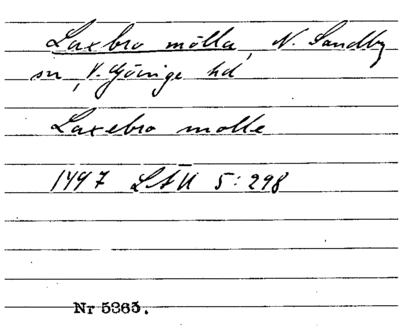 Laxbro mölla, N. Sandby
sn, V. Göinge hd
Laxebro molle
1497 LSU 5:298
Nr 5363.